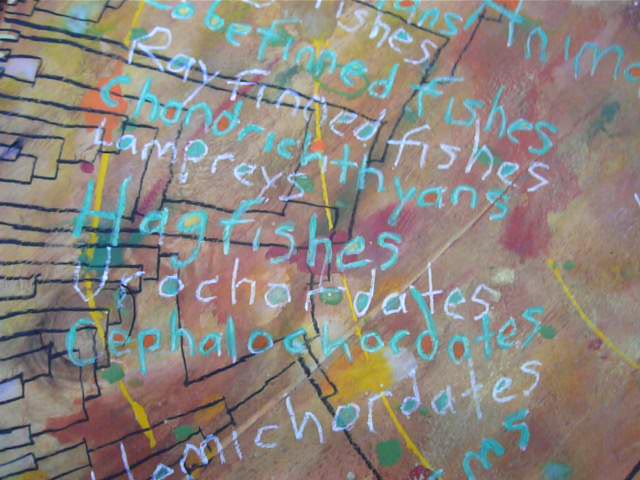 fishes
Lobefinned fishes
Rayfinned fishes
Chondrichthyans
Lampreys
Hagfishes
Urochordates
Cephalochordates
Hemichordates
ms